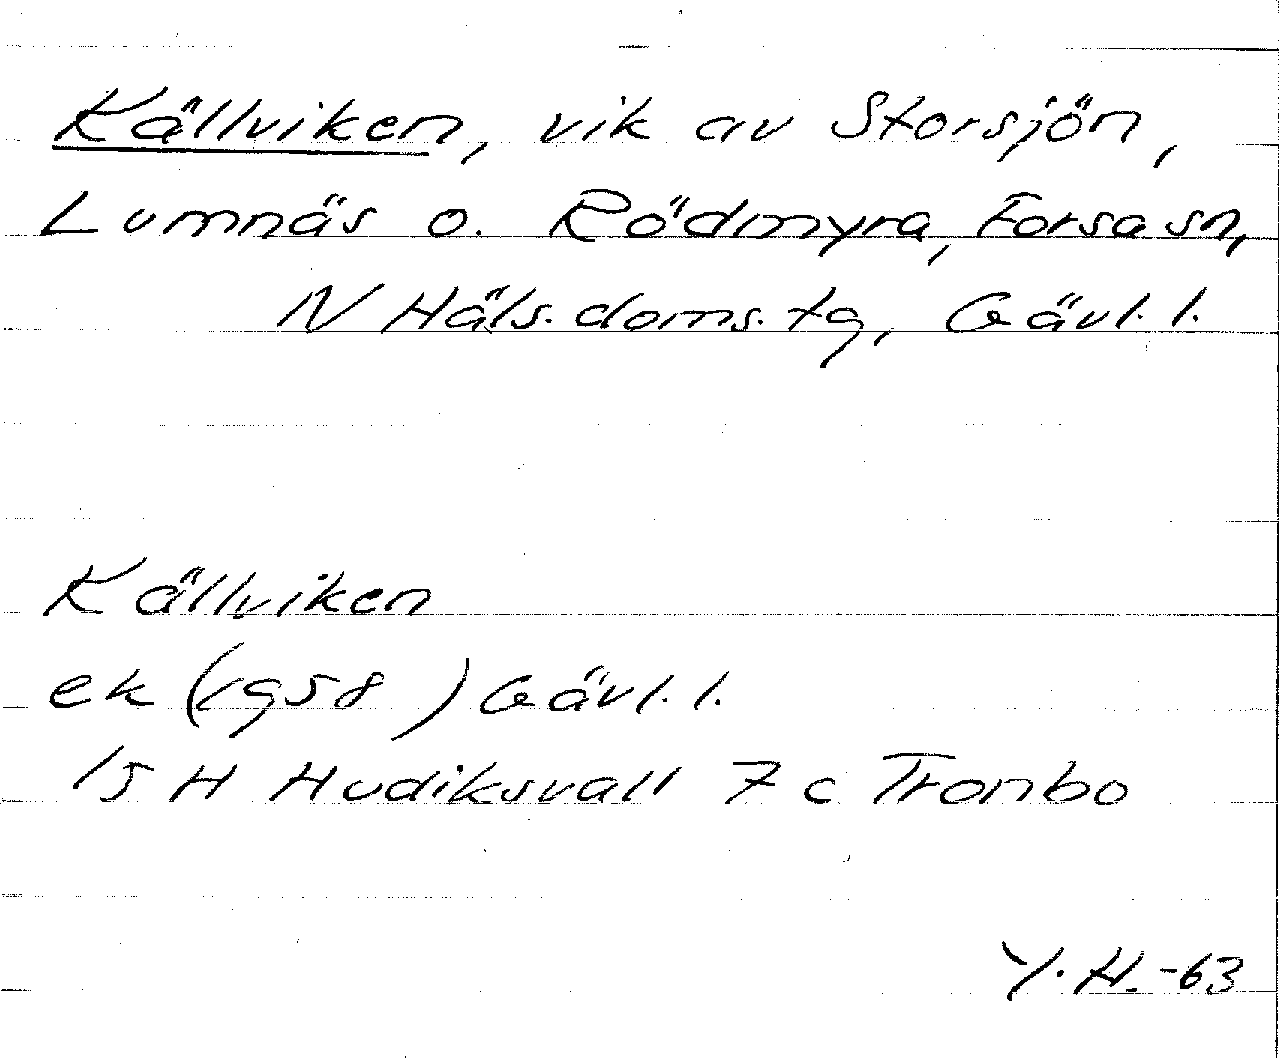 Källviken, vik av Storsjön,
Lumnäs o. Rödmyra, Forsa sn,
N Häls. doms. tg, Gävl. l.
Källviken
ek (1958) Gävl. l.
15 H Hudiksvall 7 c Trombo
Y. H. -63